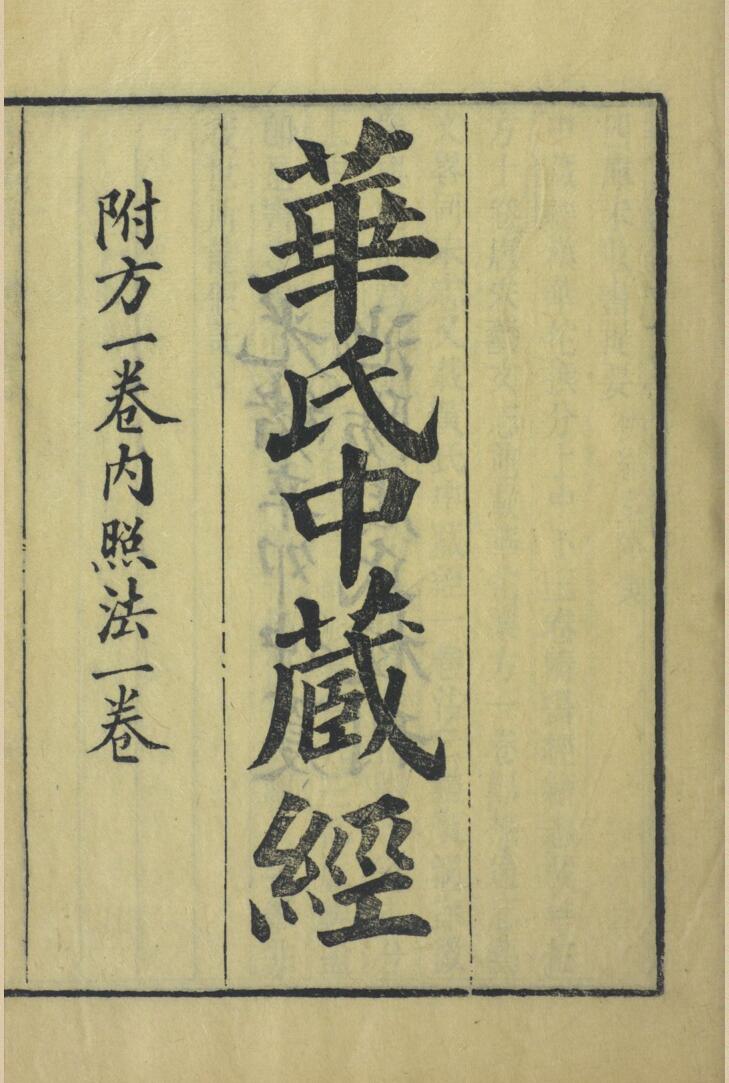 華氏中藏經
附方一卷内照法一卷